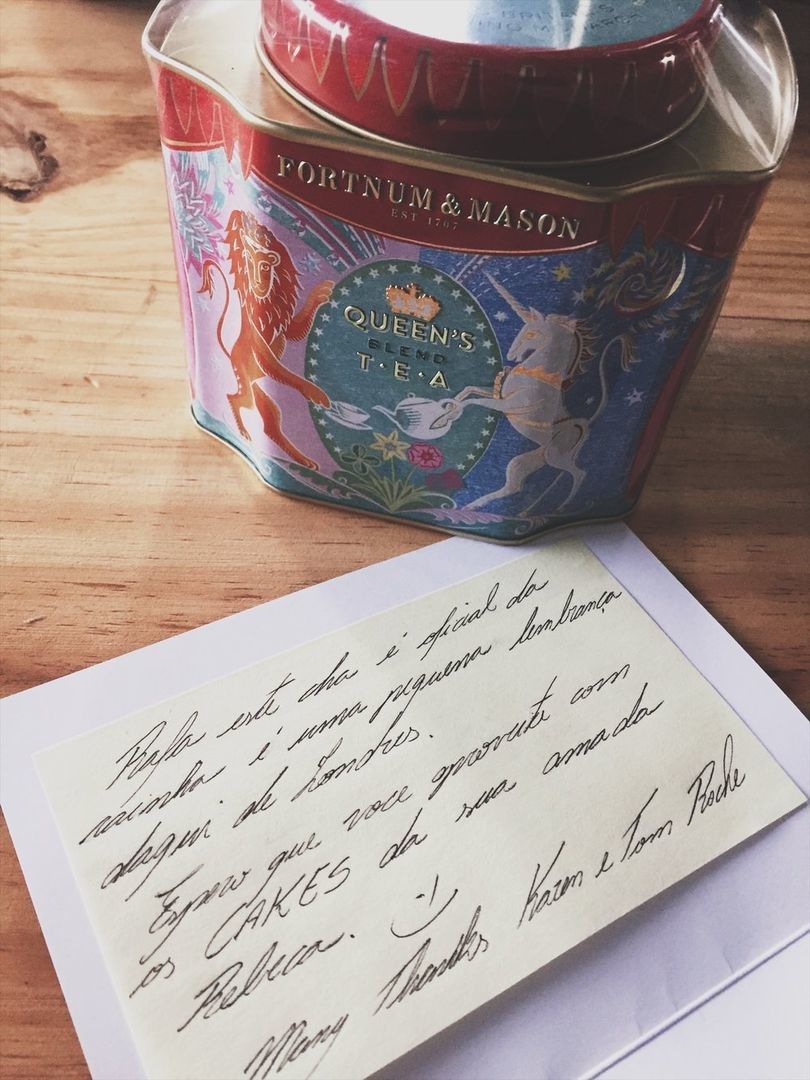 FORTNUM & MASON
EST 1707
QUEEN'S
BLEND
T·E·A
Rafa este cha é oficial da
rainha é uma pequena lembrança
daqui de Londres.
Espero que voce aproveite com
os CAKES da sua amada
Rebeca. :-)
Many Thanks Karen e Tom Roche